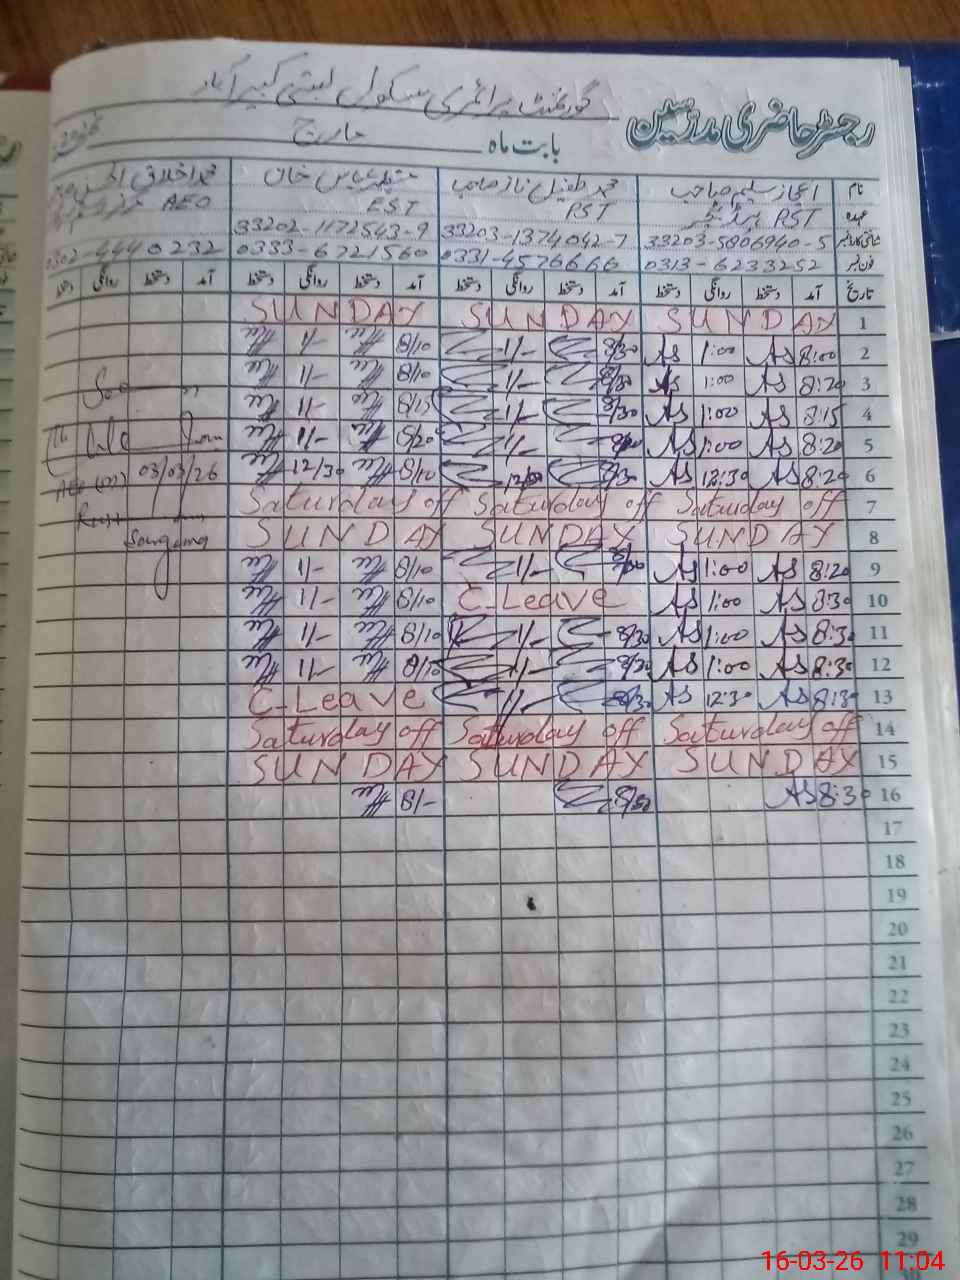 گورنمنٹ پرائمری سکول بستی کبیر آباد
رجسٹر حاضری مدرسین
بابت ماہ مارچ
نام اعجاز سلیم صاحب محمد طفیل ناز صاحب خان محمد اخلاق
عہدہ PST ہیڈ ٹیچر PST EST AEO
شناختی کارڈ نمبر 33203-5806940-5 33203-1374042-7 33202-1172543-9
فون نمبر 0313-6233252 0331-4576666 0333-6721560 0302-4440232
تاریخ آمد دستخط روانگی دستخط آمد دستخط روانگی دستخط آمد دستخط روانگی دستخط آمد دستخط روانگی دستخط
1 SUNDAY SUNDAY SUNDAY
2 8:00 AS 1:00 AS 8/30 1/- 8/10 1/-
3 8:20 AS 1:00 AS 8/30 1/- 8/10 1/-
4 8:15 AS 1:00 AS 8/30 1/- 8/15 1/-
5 8:20 AS 1:00 AS 1/- 8/20 1/-
6 8:20 AS 12:30 AS 8/30 8/10 12/30 03/03/26
7 Saturday off Saturday off Saturday off
8 SUNDAY SUNDAY SUNDAY
9 8:20 AS 1:00 AS 1/- 8/10 1/-
10 8:30 AS 1:00 AS C-Leave 8/10 1/-
11 8:30 AS 1:00 AS 8/30 1/- 8/10 1/-
12 8:30 AS 1:00 AS 8/30 1/- 8/10 1/-
13 8:30 AS 12:30 AS 8/30 1/- C-Leave
14 Saturday off Saturday off Saturday off
15 SUNDAY SUNDAY SUNDAY
16 8:30 AS 8/30 8/-
17
18
19
20
21
22
23
24
25
26
27
28
29
16-03-26 11:04